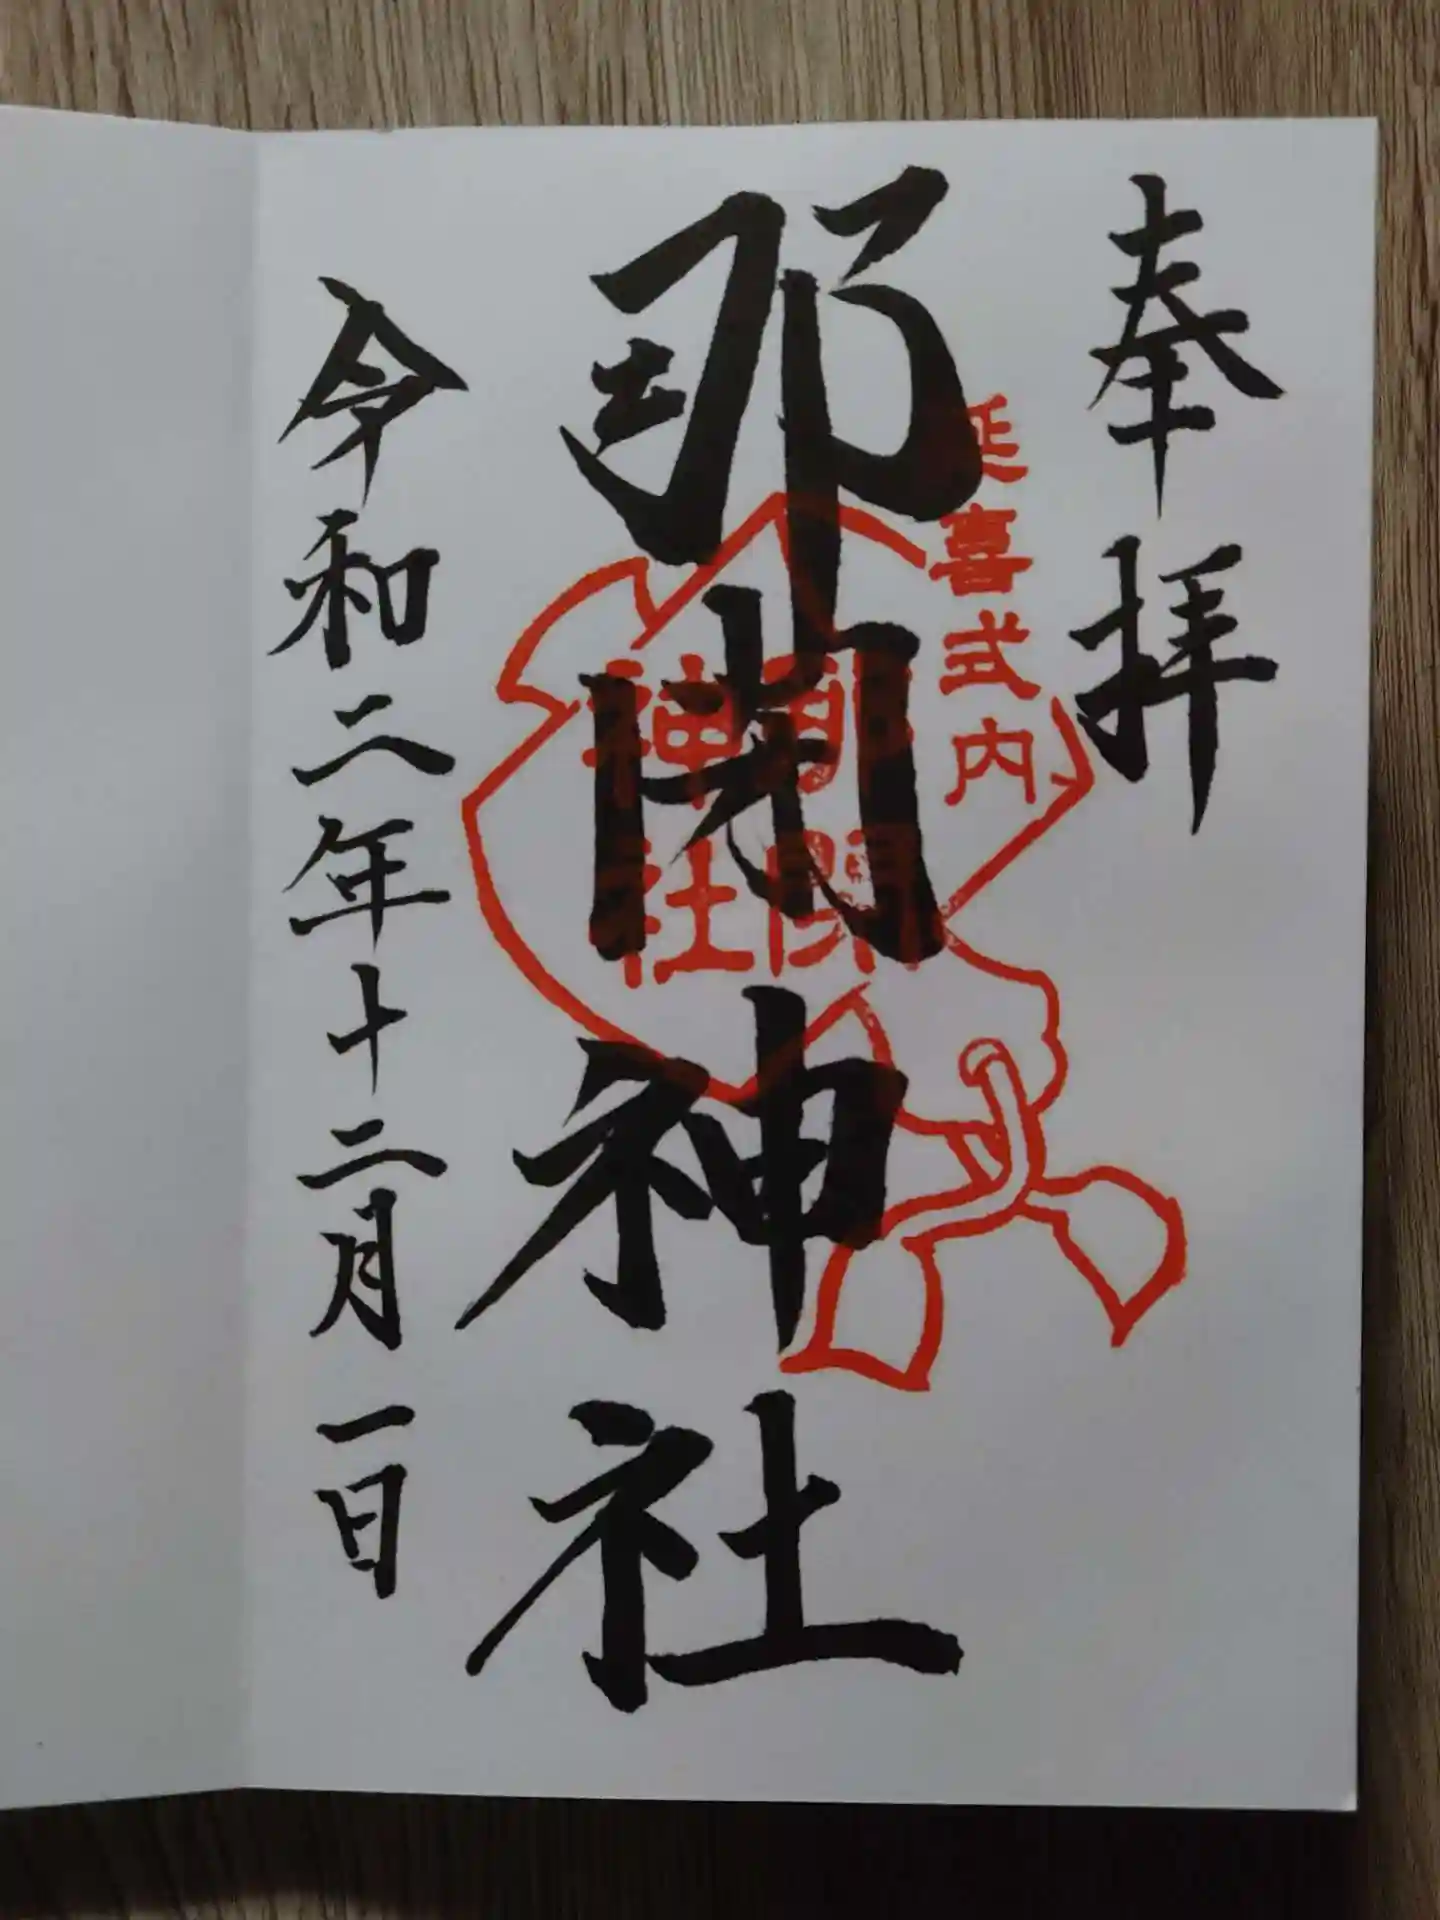 奉拝
延喜式内
那閉神社
那閉
神社
令和二年十二月一日